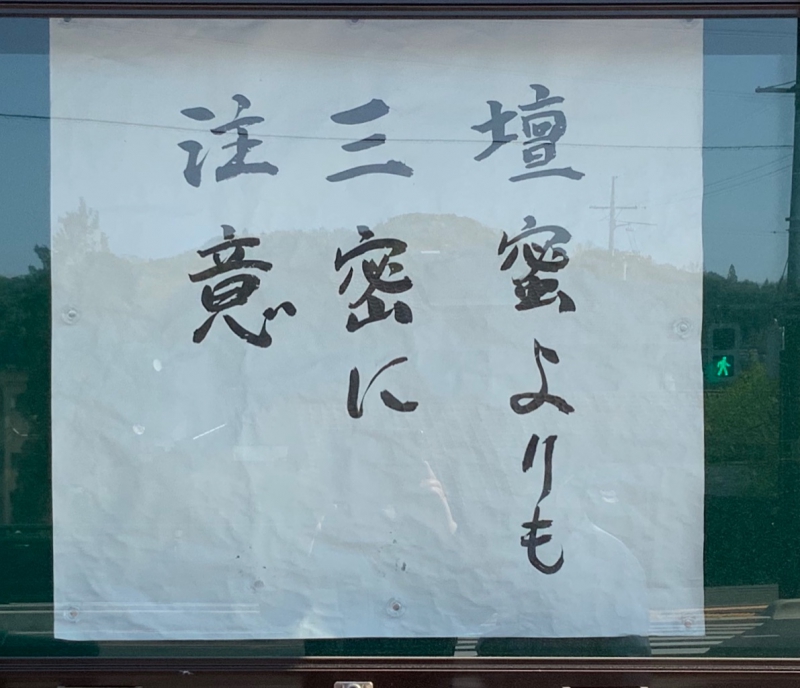 壇蜜よりも
三密に
注意